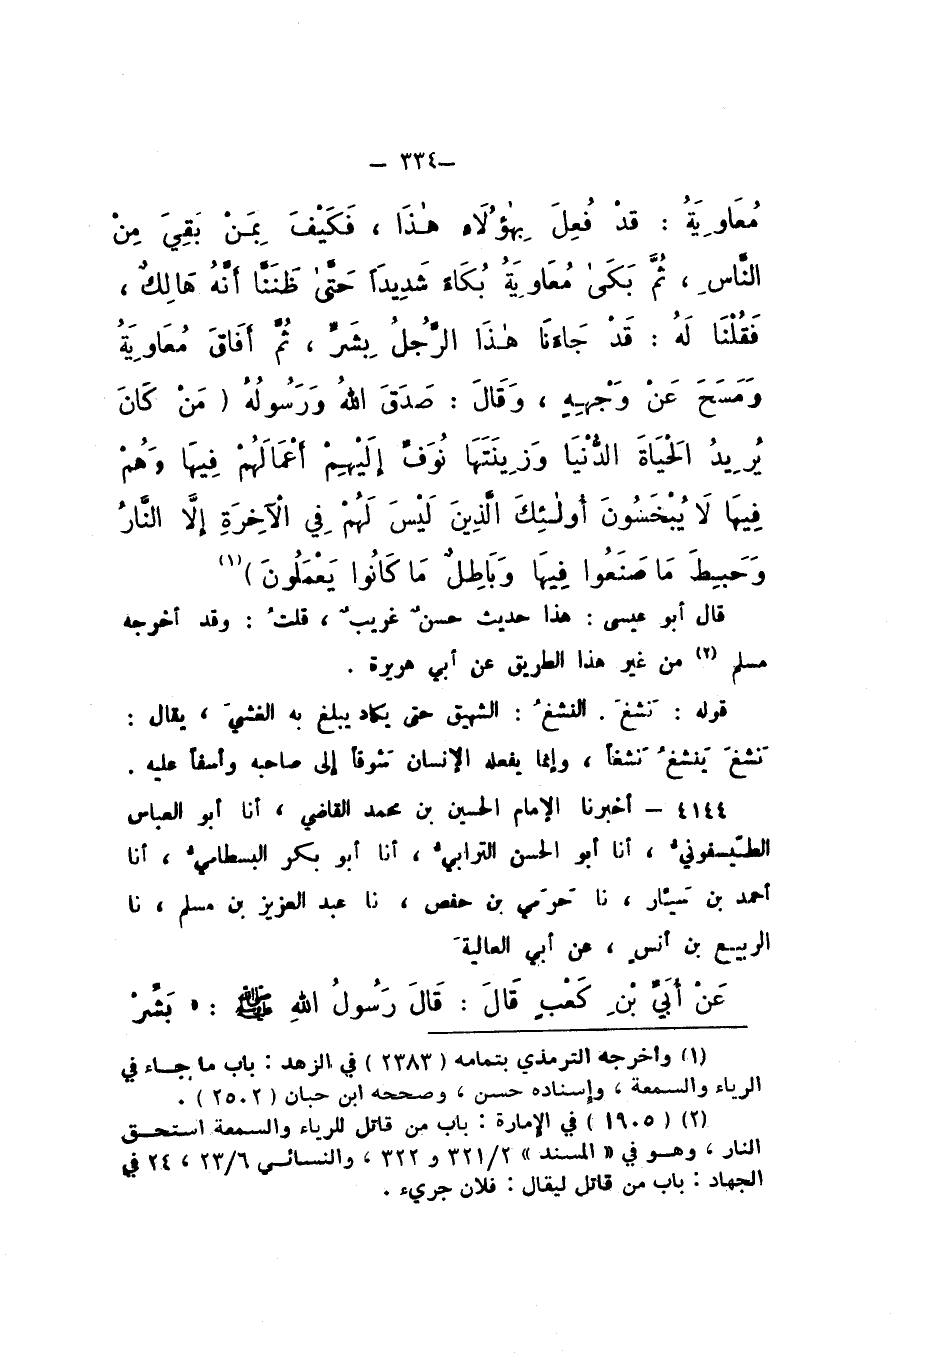 –٣٣٤ –
مُعَاوِيَةُ : قَدْ فُعِلَ بِهٰؤُلَاءِ هٰذَا ، فَكَيْفَ بِمَنْ بَقِيَ مِنْ
النَّاسِ ، ثُمَّ بَكَىٰ مُعَاوِيَةُ بُكَاءً شَدِيدَاً حَتَّىٰ ظَنَنَّا أَنَّهُ هَالِكٌ ،
فَقُلْنَا لَهُ : قَدْ جَاءَنَا هٰذَا الرَّجُلُ بِشَرٍّ ، ثُمَّ أَفَاقَ مُعَاوِيَةُ
وَمَسَحَ عَنْ وَجْهِهِ ، وَقَالَ : صَدَقَ اللهُ وَرَسُولُهُ ( مَنْ كَانَ
يُرِيدُ الْحَيَاةَ الدُّنْيَا وَزِينَتَهَا نُوَفِّ إِلَيْهِمْ أَعْمَالَهُمْ فِيهَا وَهُمْ
فِيهَا لَا يُبْخَسُونَ أُولٰئِكَ الَّذِينَ لَيْسَ لَهُمْ فِي الْآخِرَةِ إِلَّا النَّارُ
وَحَبِطَ مَا صَنَعُوا فِيهَا وَبَاطِلٌ مَا كَانُوا يَعْمَلُونَ )(١)
قال أبو عيسى : هذا حديث حسنٌ غريبٌ ، قلتُ : وقد أخرجه
مسلم (٢) من غير هذا الطريق عن أبي هريرة .
قوله : نَشغَ . النشغُ : الشهيق حتى يكاد يبلغ به الغشيَ ، يقال :
نَشغَ يَنشغُ نَشغاً ، وإنما يفعله الإنسان تَشوقاً إلى صاحبه وأسفاً عليه .
٤١٤٤ – أخبرنا الإمام الحسين بن محمد القاضي ، أنا أبو العباس
الطيّسفونيُّ ، أنا أبو الحسن الترابيُّ ، أنا أبو بكر البسطاميُّ ، أنا
أحمد بن سَيّار ، نا حَرَمي بن حفص ، نا عبد العزيز بن مسلم ، نا
الربيع بن أنسٍ ، عن أبي العاليةَ
عَنْ أُبَيِّ بْنِ كَعْبٍ قَالَ : قَالَ رَسُولُ اللهِ ﷺ : « بَشِّرْ
(١) وأخرجه الترمذي بتمامه ( ٢٣٨٣ ) في الزهد : باب ما جاء في
الرياء والسمعة ، وإسناده حسن ، وصححه ابن حبان ( ٢٥٠٢ ) .
(٢) ( ١٩٠٥ ) في الإمارة : باب من قاتل للرياء والسمعة استحق
النار ، وهو في « المسند » ٣٢١/٢ و ٣٢٢ ، والنسائي ٢٣/٦ ، ٢٤ في
الجهاد : باب من قاتل ليقال : فلان جريء .